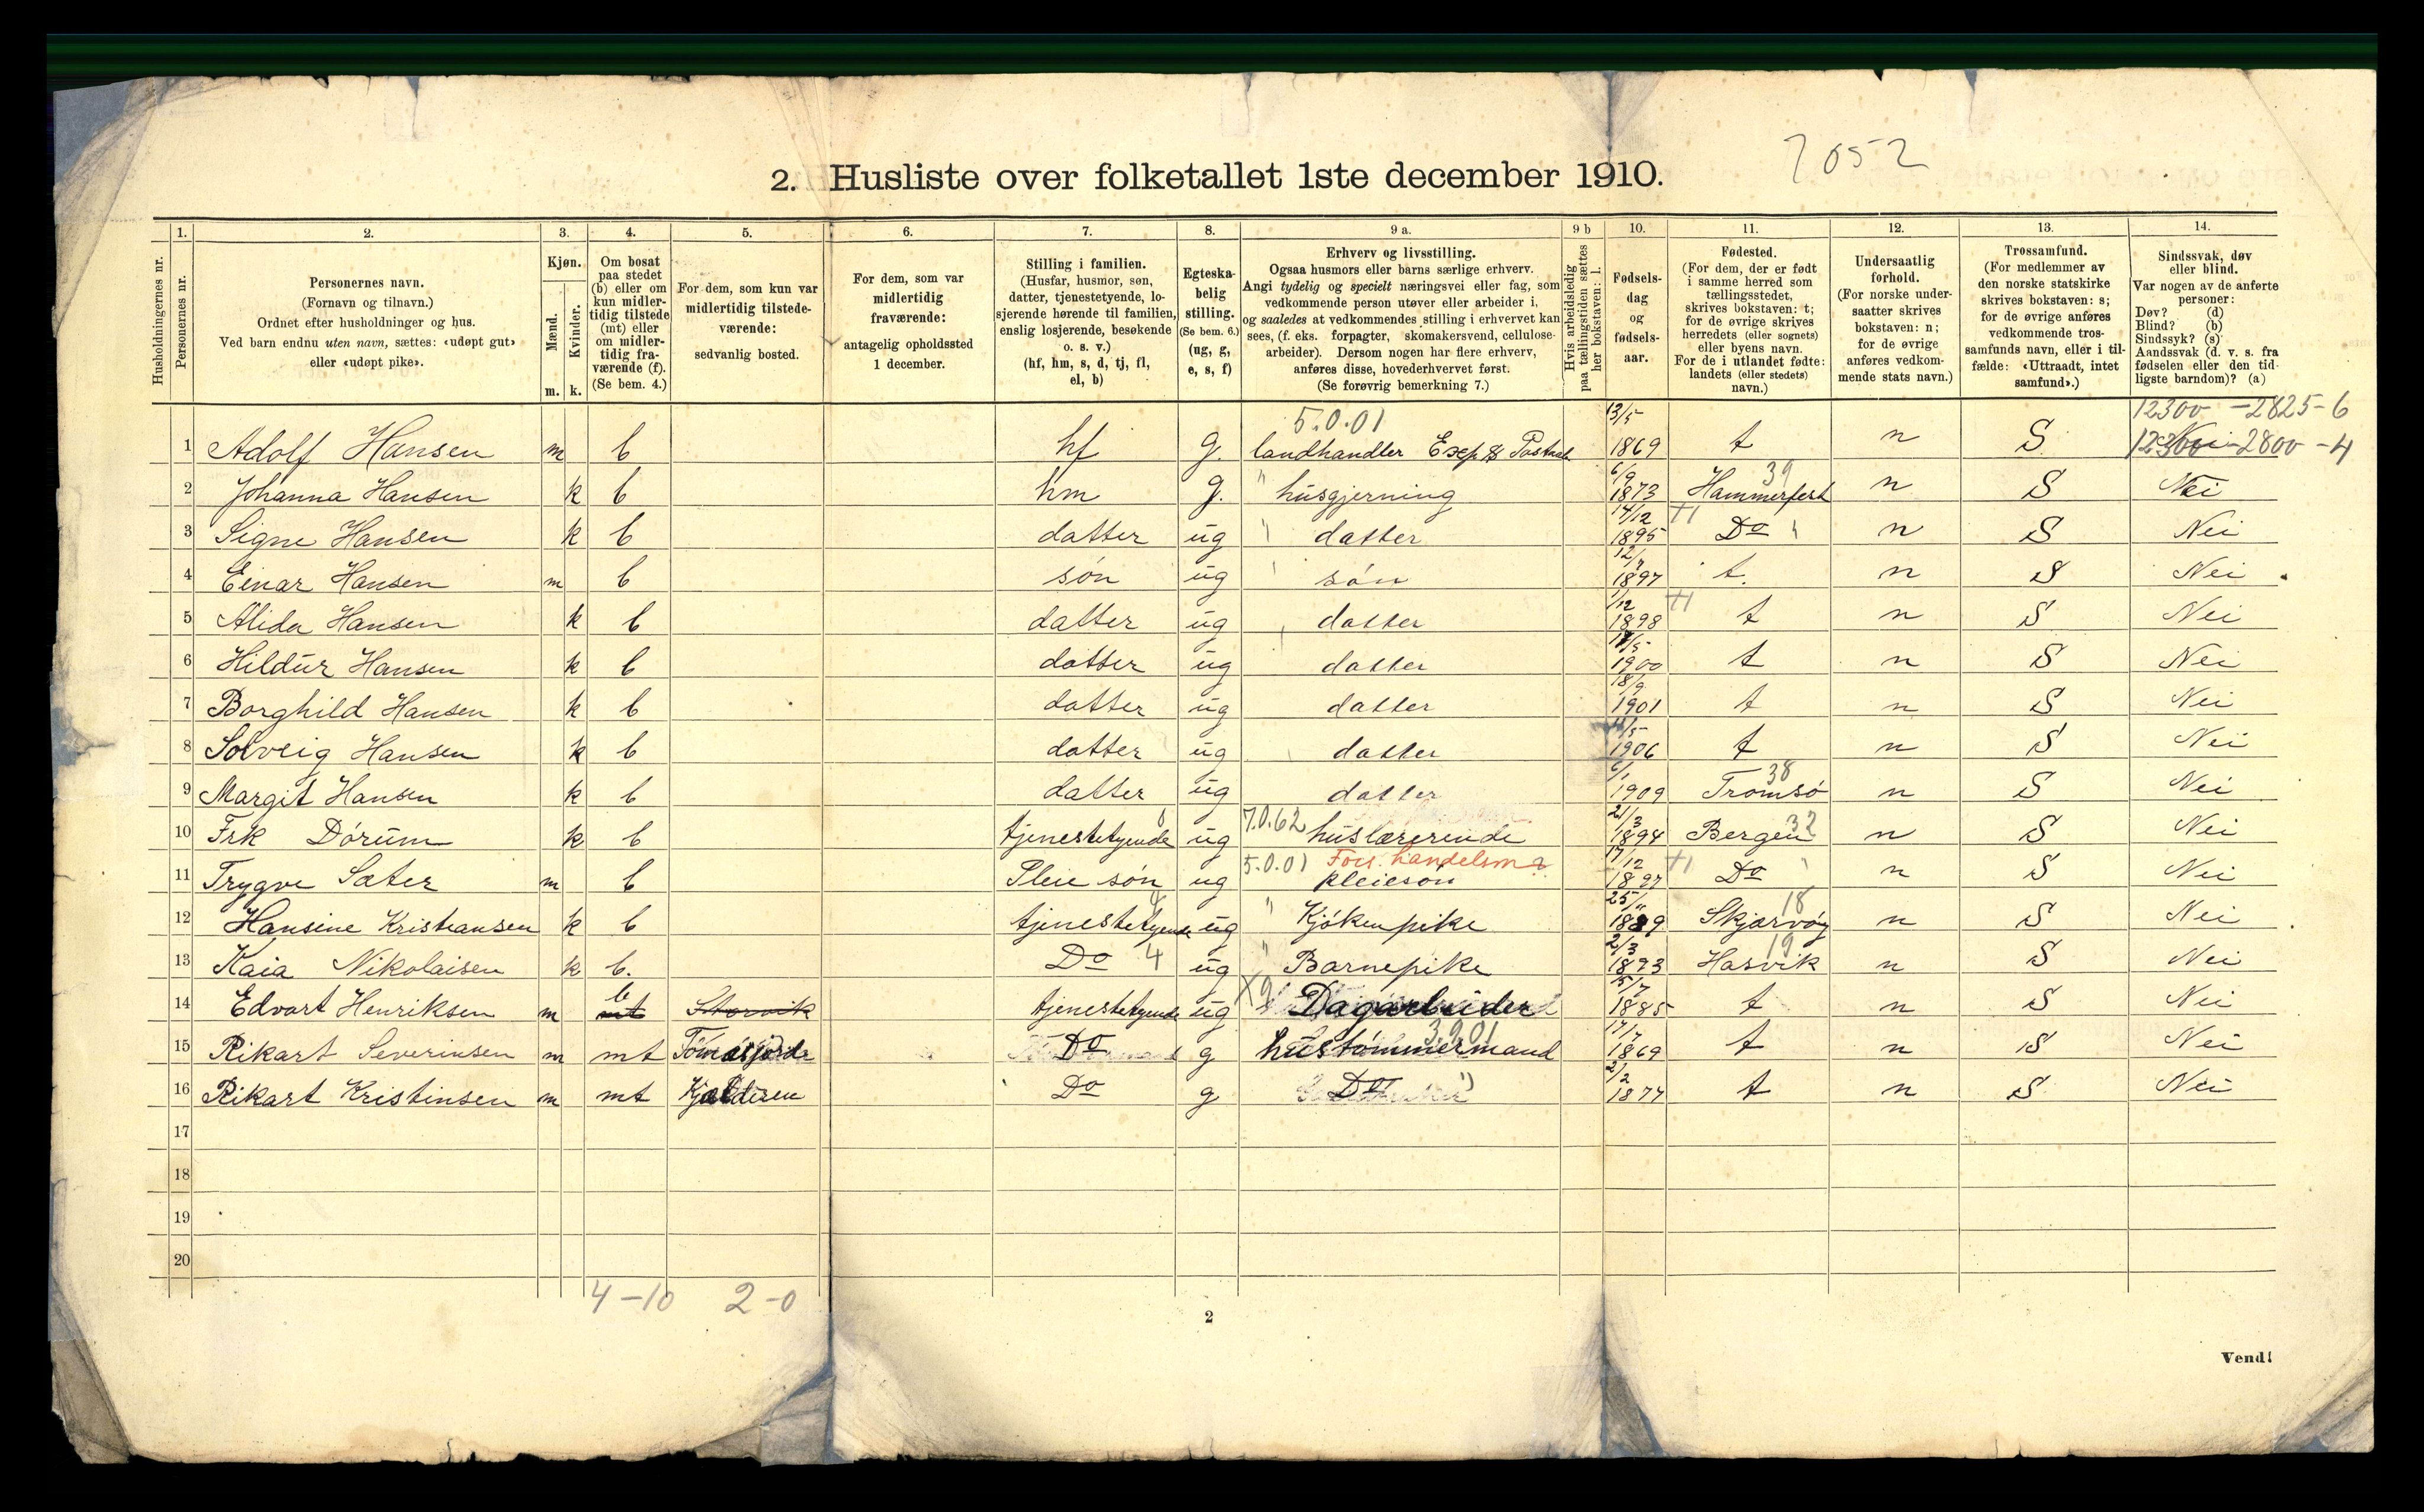 7052
2. Husliste over folketallet 1ste december 1910.
Husholdningernes nr.
1.
Personernes nr.
2.
Personernes navn.
(Fornavn og tilnavn.)
Ordnet efter husholdninger og hus.
Ved barn endnu uten navn, sættes: «udøpt gut»
eller «udøpt pike».
3.
Kjøn.
Mænd.
Kvinder.
m. k.
4.
Om bosat
paa stedet
(b) eller om
kun midler-
tidig tilstede
(mt) eller
om midler-
tidig fra-
værende (f).
(Se bem. 4.)
5.
For dem, som kun var
midlertidig tilstede-
værende:
sedvanlig bosted.
6.
For dem, som var
midlertidig
fraværende:
antagelig opholdssted
1 december.
7.
Stilling i familien.
(Husfar, husmor, søn,
datter, tjenestetyende, lo-
sjerende hørende til familien,
enslig losjerende, besøkende
o. s. v.)
(hf, hm, s, d, tj, fl,
el, b)
8.
Egteska-
belig
stilling.
(Se bem. 6.)
(ug, g,
e, s, f)
9 a.
Erhverv og livsstilling.
Ogsaa husmors eller barns særlige erhverv.
Angi tydelig og specielt næringsvei eller fag, som
vedkommende person utøver eller arbeider i,
og saaledes at vedkommendes stilling i erhvervet kan
sees, (f. eks. forpagter, skomakersvend, cellulose-
arbeider). Dersom nogen har flere erhverv,
anføres disse, hovederhvervet først.
(Se forøvrig bemerkning 7.)
9 b
Hvis arbeidsledig
paa tællingstiden sættes
her bokstaven: l.
10.
Fødsels-
dag
og
fødsels-
aar.
11.
Fødested.
(For dem, der er født
i samme herred som
tællingsstedet,
skrives bokstaven: t;
for de øvrige skrives
herredets (eller sognets)
eller byens navn.
For de i utlandet fødte:
landets (eller stedets)
navn.)
12.
Undersaatlig
forhold.
(For norske under-
saatter skrives
bokstaven: n;
for de øvrige
anføres vedkom-
mende stats navn.)
13.
Trossamfund.
(For medlemmer av
den norske statskirke
skrives bokstaven: s;
for de øvrige anføres
vedkommende tros-
samfunds navn, eller i til-
fælde: «Uttraadt, intet
samfund».)
14.
Sindssvak, døv
eller blind.
Var nogen av de anførte
personer:
Døv? (d)
Blind? (b)
Sindssyk? (s)
Aandssvak (d. v. s. fra
fødselen eller den tid-
ligste barndom)? (a)
5.0.01 12300 -2825-6
1 Adolf Hansen m b hf g. landhandler Exp 13/5 1869 t n S Nei 12300-2800-4
2 Johanna Hansen k b hm g. " husgjerning 6/9 1873 Hammerfest 39 n S Nei
3 Signe Hansen k b datter ug " datter 14/12 1895 Do " n S Nei
4 Einar Hansen m b søn ug søn 1897 t. n S Nei
5 Alida Hansen k b datter ug datter 1898 t n S Nei
6 Hildur Hansen k b datter ug datter 1900 t n S Nei
7 Borghild Hansen k b datter ug datter 18/9 1901 t n S Nei
8 Solveig Hansen k b datter ug datter 1906 t n S Nei
9 Margit Hansen k b datter ug datter 6/1 1909 Tromsø 38 n S Nei
10 Frk Dórum k b tjenestetyende ug 7.0.62 huslærerende 21/3 1894 Bergen 32 n S Nei
11 Trygve Sæter m b Pleie søn ug 5.0.01 Fors. handelsm pleiesøn 17/12 1897 Do " n S Nei
12 Hansine Kristiansen k b tjenestetyende ug " Kjøkenpike 25/11 1889 Skjærvøy 18 n S Nei
13 Kaia Nikolaisen k b. Do 4 ug " Barnepike 2/3 1893 Hasvik 19 n S Nei
14 Edvart Henriksen m b mt Storvik tjenestetyende ug Dagarbeider 15/7 1885 t n S Nei
15 Rikart Severinsen m mt Do g 3.9.01 hustømmermand 17/7 1869 t n S Nei
16 Rikart Kristinsen m mt Do g Do 2/2 1877 t n S Nei
17
18
19
20
4-10 2-0
2
Vend!